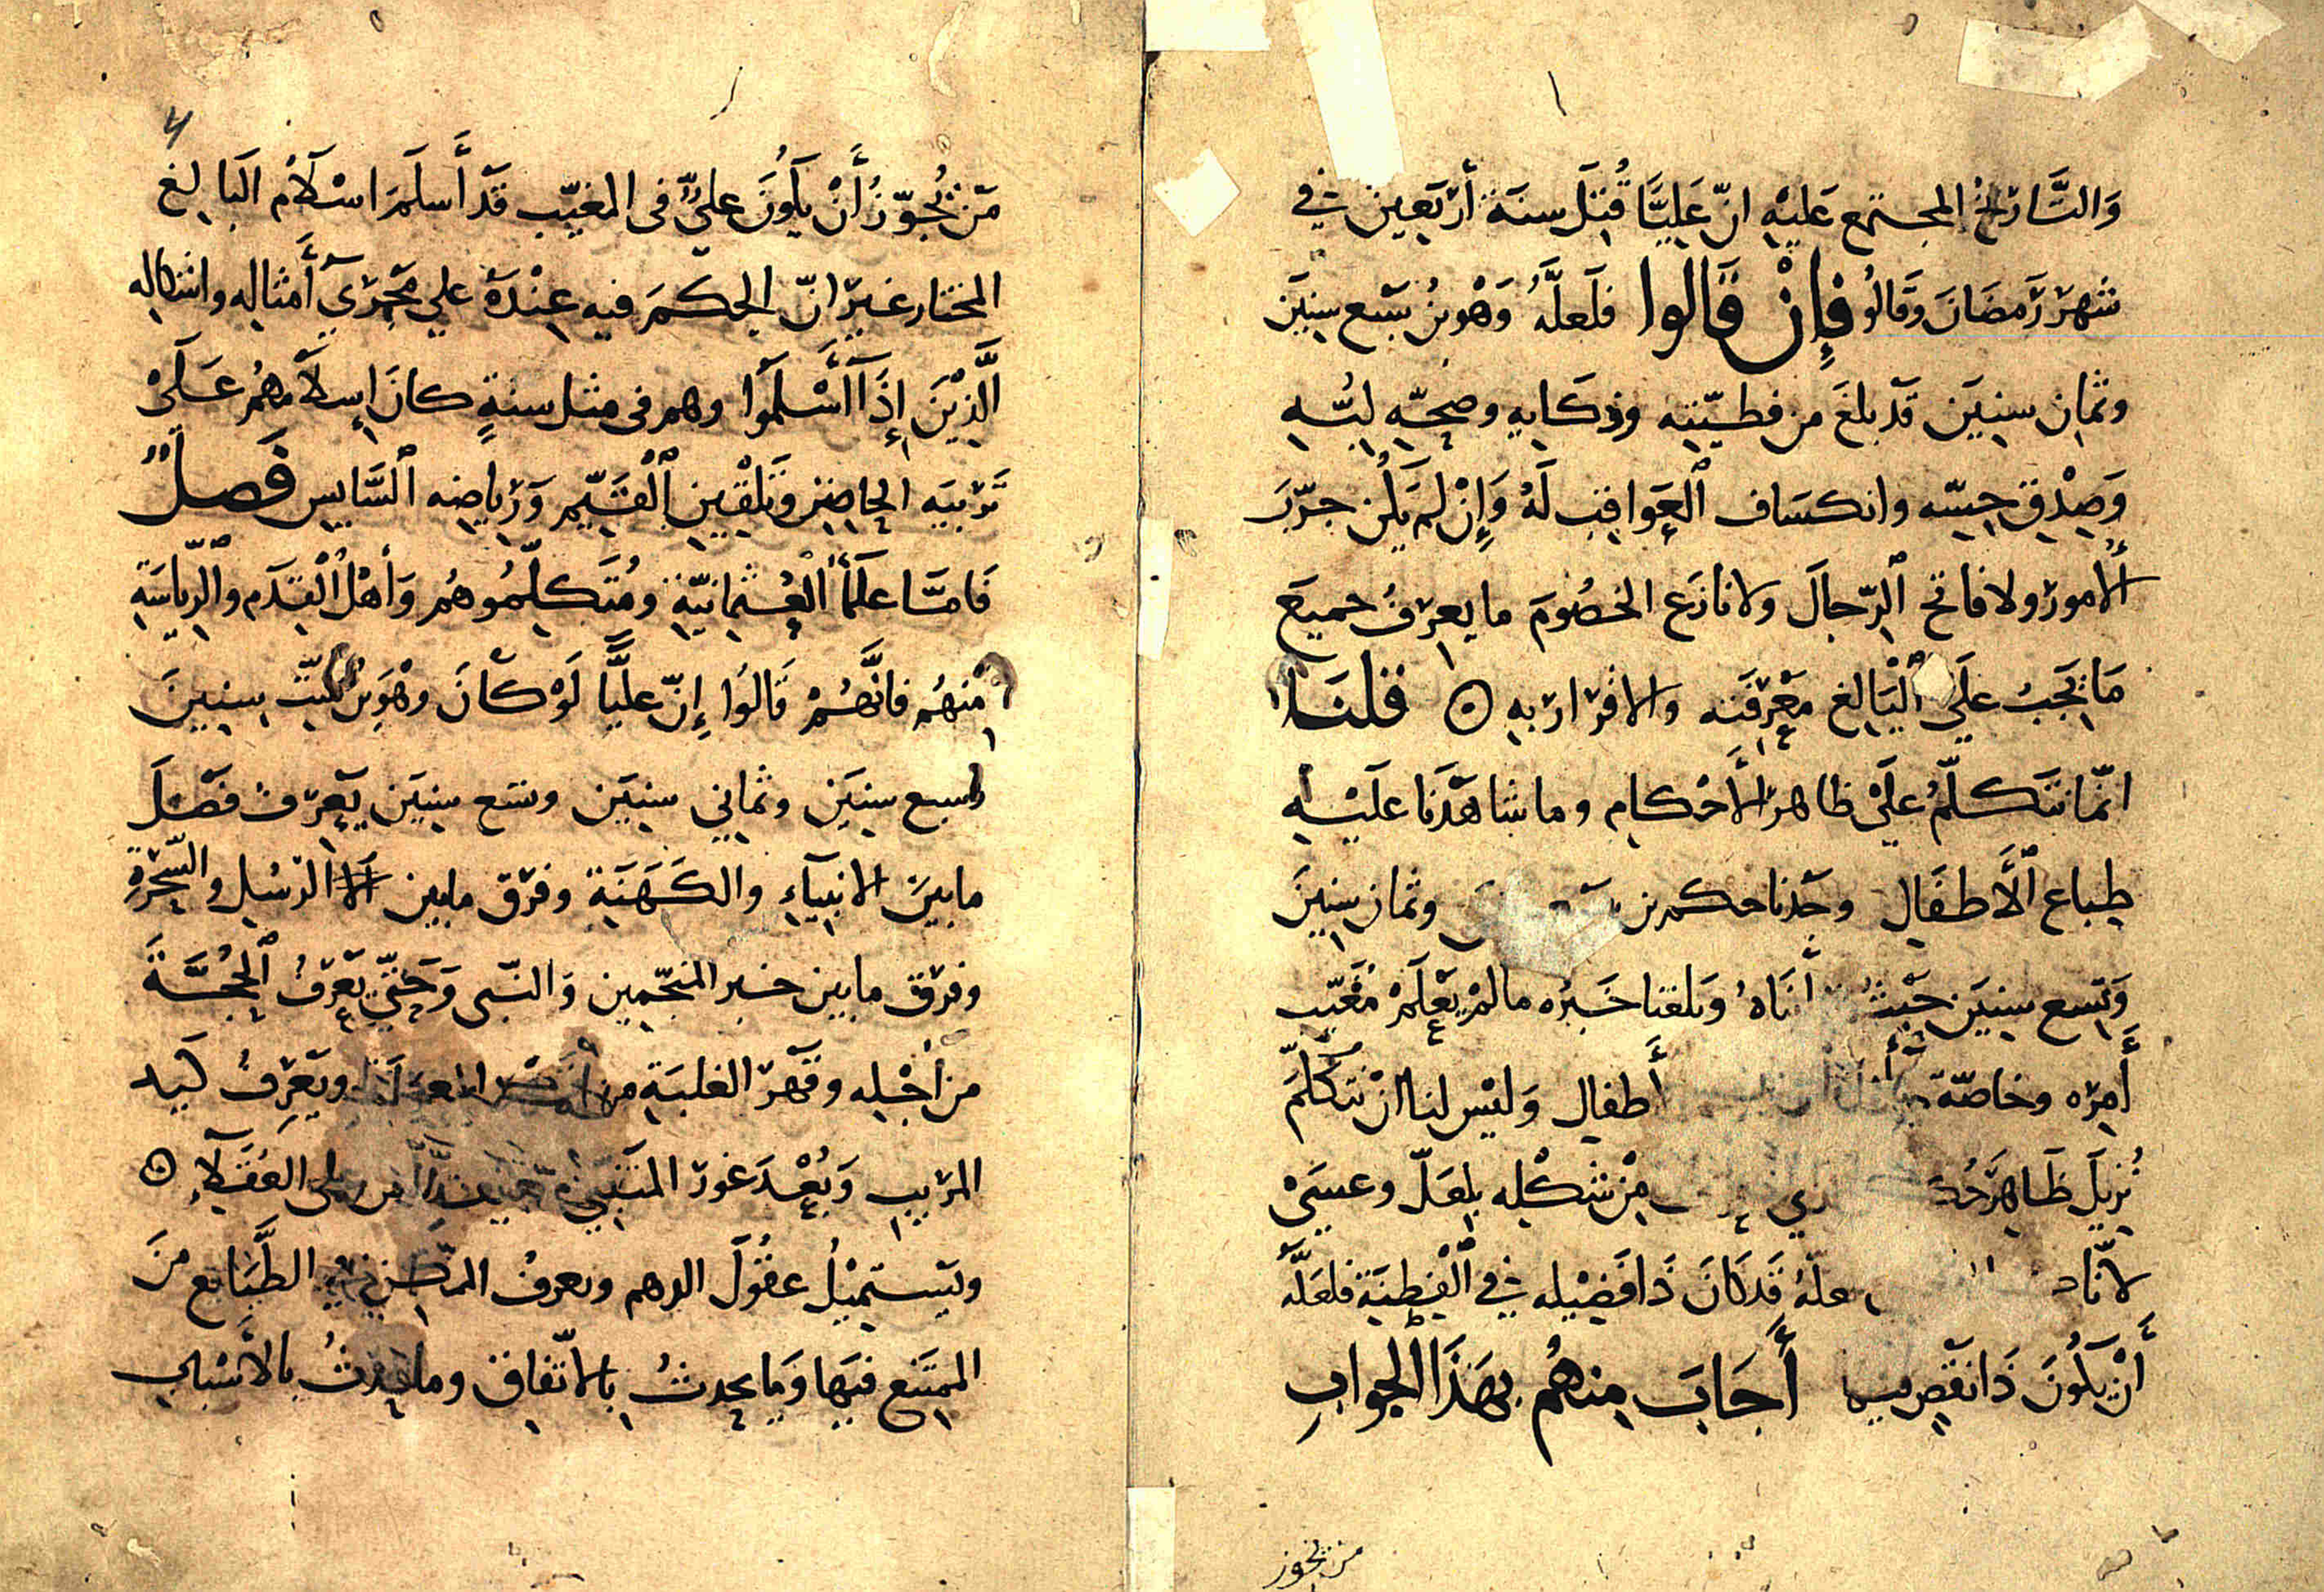 وَالتَّارِيخُ المجتمع عَلَيْهِ انّ عَلِيًّا قُتِلَ سنَةَ أربَعِينَ فِي
شَهرِ رَمَضَانَ وَقَالُو فَإِنْ قَالُوا فَلَعَلَّهُ وَهْوَ بْنُ سَبْع سِنِينَ
وثمانِ سِنِينَ قَدْ بلغَ من فطنتِهِ وذكَايِهِ وصِحَّةِ لُبِّهِ
وَصِدْقِ حِسِّه وانكشاف ٱلْعَوَاقِبِ لَهُ وَإِنْ لَم يَكُن جرّبَ
الأمورَ ولا فاتح ٱلرّجالَ ولا نازَع الخصُومَ ما يعرفُ جميعَ
مَا يَجِبُ عَلَى ٱلْبَالِغِ مَعْرِفَته والاقرَار بِهِ قلنَا
انّما نَتَكَلَّمُ عَلَى ظاهر الأَحْكَامِ وما شاهَدْنَا عَلَيْهِ
طِبَاعِ ٱلْأَطفَالِ وجَدْنا حكم بن وثمان سِنِينَ
وَتِسع سِنِينَ حَيْثُ أَنَاهُ وَبلغنا خَبَرُه ما لَمْ يعْلَمْ مُغَيَّب
أَمرِه وخاصّة أطفالِ وَليْس لنا انْ نَتَكَلَّمَ
نُزِيلَ ظَاهِرَ حُك ري مِنْ شَكْلِه بلعَلّ وعسَى
لانّا د علهُ قَد كَانَ ذَا فَضِيْله فِي ٱلْفِطْنَةِ فَلعَلَّهُ
أَنْ يَكُونَ ذَا نقْصٍ فِيهَا أَجَابَ مِنهُم بِهَذَا الجوابِ
من يجوز
مَن يُجوّزُ أَنْ يَكُونَ عليٌّ فى المغيّب قَدْ أَسلَمَ اسْلَامَ البَالِغ
المختار غيرَ انّ الحكمَ فيهِ عِنْدَهُ عَلَى مَجْرَى أَمثاله واشكاله
الَّذِيْنَ إِذَا أَسْلَمُوا وهم فى مثل سِنّهِ كانَ إِسلامهُمْ عَلَى
تَرْبِيَهِ الحَاضِنِ وَتَلْقِينِ ٱلْقَيِّمِ وَرِيَاضِه ٱلسَّايِسِ فَصلٌ
فَامَّا عُلَمَاُ ٱلْعُثْمَانِيَّةِ ومُتَكَلِّمُوهُم وَأَهْلُ ٱلْقَدَمِ وٱلرِّيَاسَةِ
مِنهُم فانَّهُمْ قَالُوا إِنّ عليًّا لَوْ كَانَ وهْوَ بْنُ سِتِّ سِنِينَ
وسبع سِنِينَ وثَمَانِي سِنِينَ وتسع سِنِينَ يَعْرِفُ فَصْلَ
مابينَ الانبِيآءِ والكَهَنَةِ وفَرْق مابين الرسُلِ والسَّحَرَةِ
وفرْق مابين خبر المنجّمِين وَالنّبى وَحَتَّى يَعْرِفُ ٱلْحُجَّةَ
من أجْلِه وقَهْرَ الغلبَةِ من ويَعْرِفُ كَيد
المريبِ وَبُعْدَ غور المتنَبِّي على العُقَلَآءِ
ويَسْتَمِيْلُ عقُولَ الدهم ويعرِفُ الممكِن فِي الطَّبَايعِ مِنَ
المُمْتَنِع فيهَا وَمَا يحدِثُ بِالاتّفاقِ وما يحدثُ بِالأَسْبَابِ